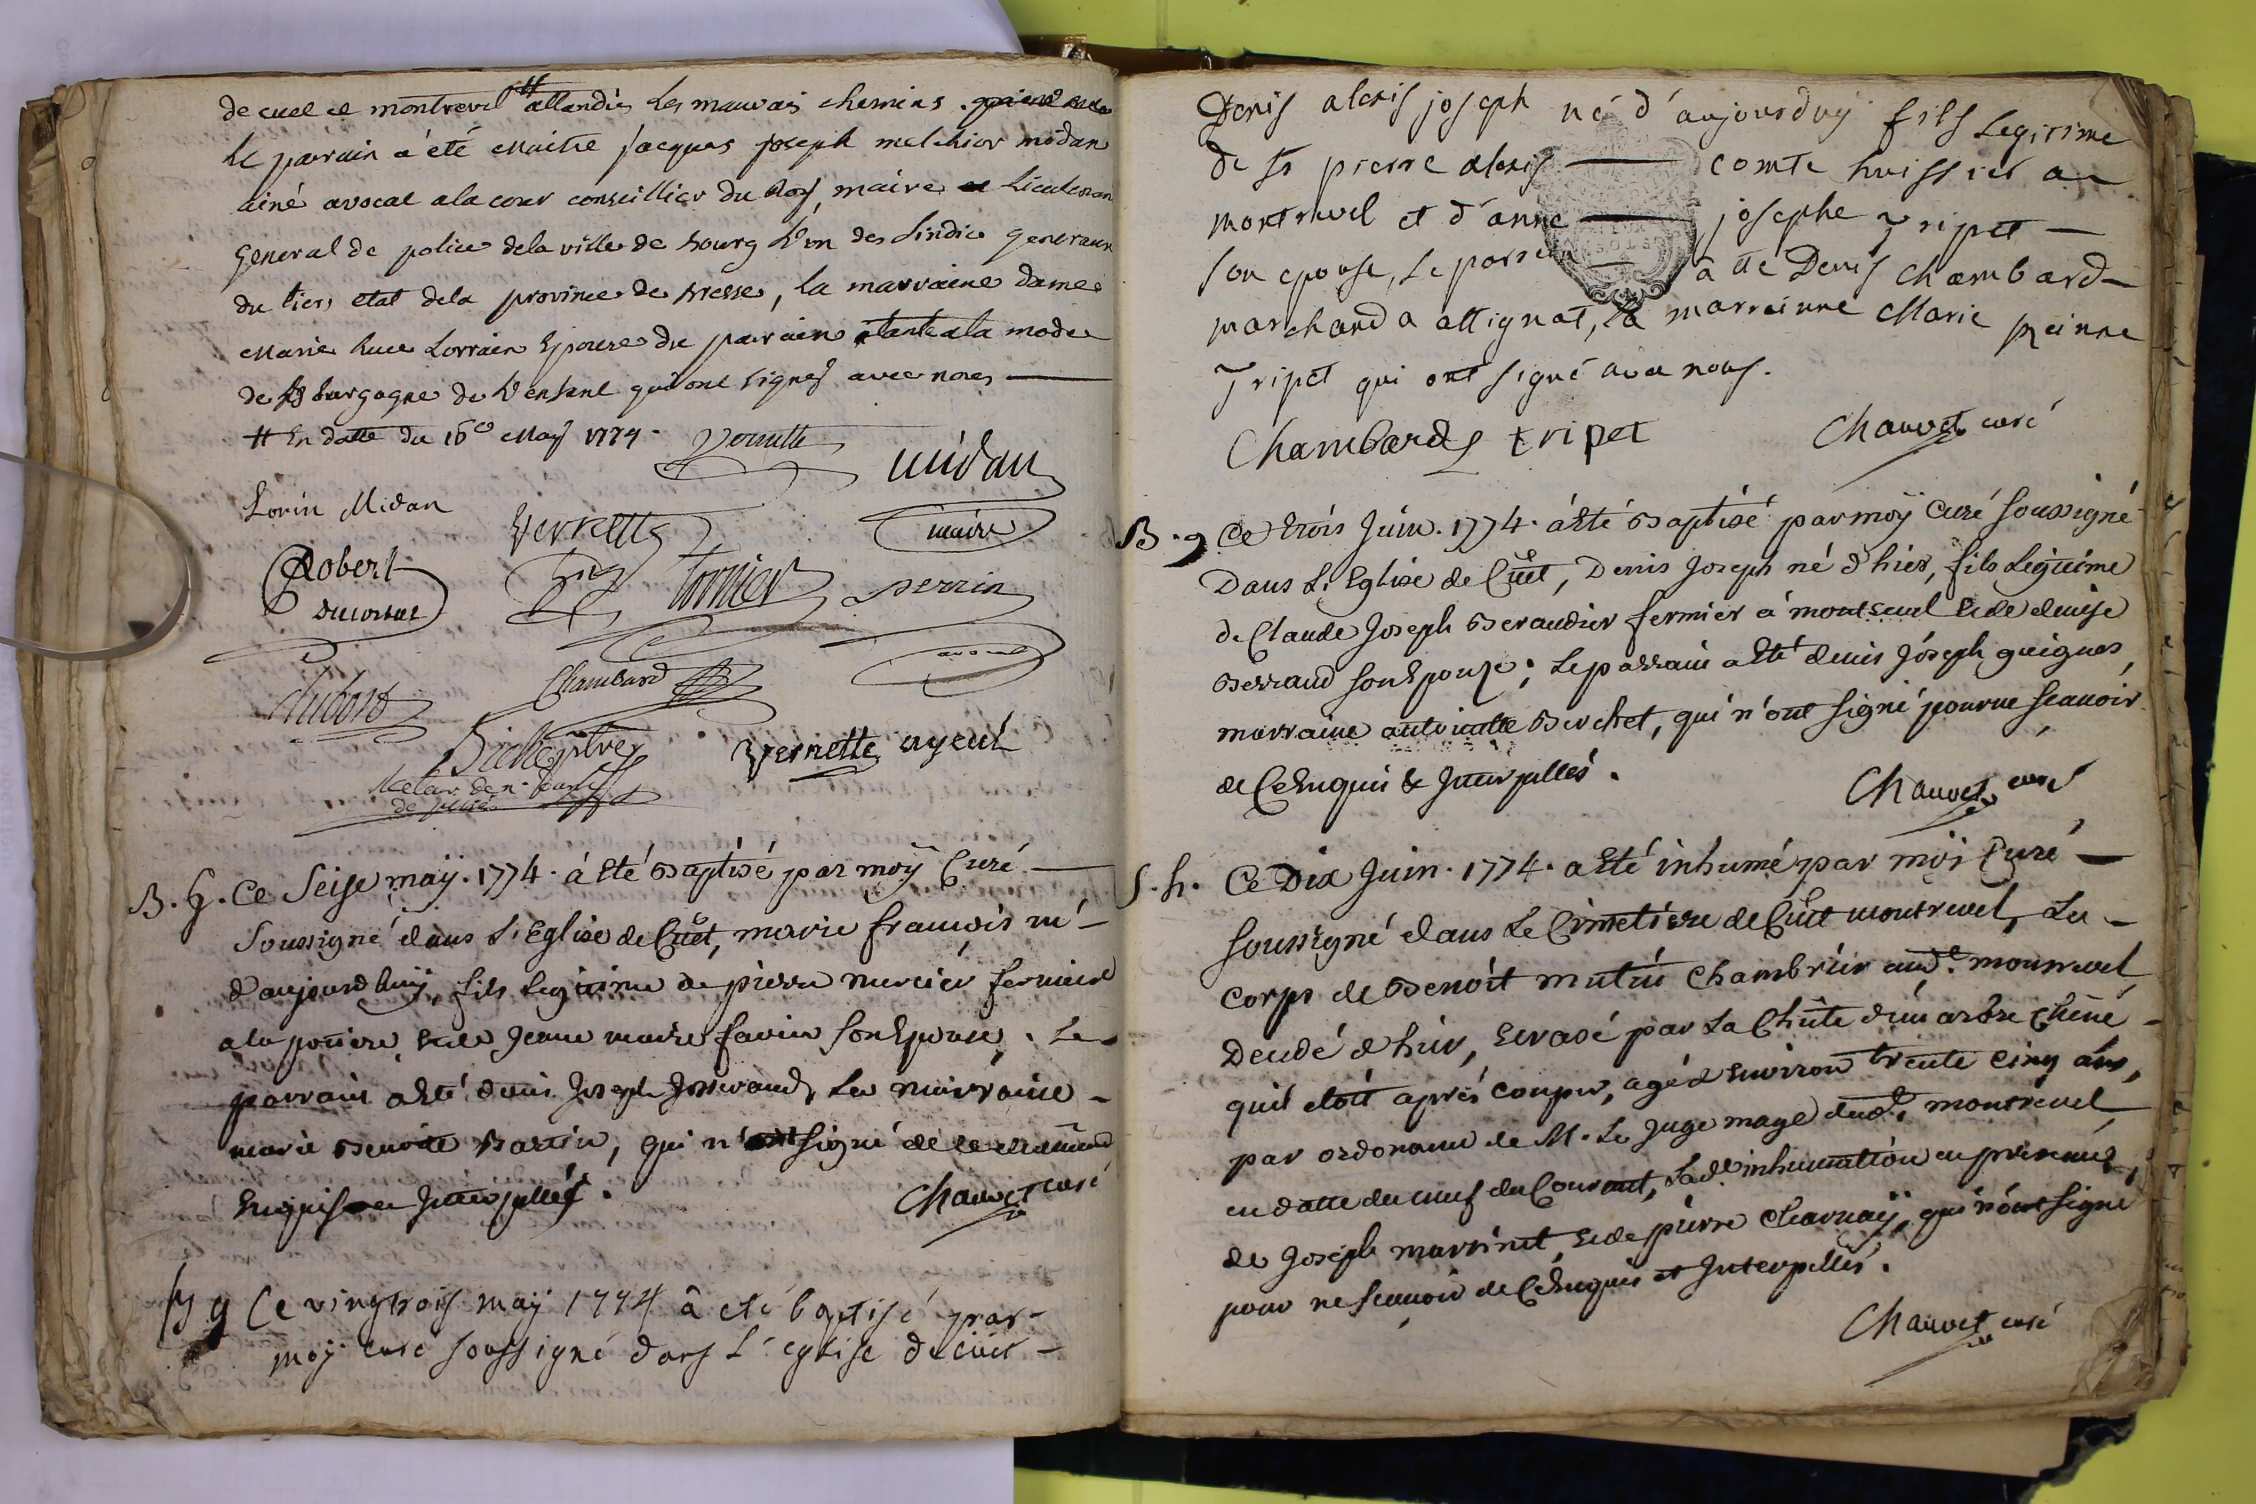 de cuet et montrevel # attandû les mauvais chemins.
le parrain a été maitre jacques joseph melchior midan
ainé avocat a la cour conseillier du Roy, maire et lieutenan
general de police de la ville de bourg l'un des sindics generaux
du tiers etat de la province de bresse, la marraine dame
marie luce Lorrain Epouse du parrain tante a la mode
de bourgogne de l'enfant qui ont signes avec nous
# En datte du 16e May 1774.
midan
maire
Lorin Midan
Vernette
Robert
ducottat
Tornier
perrin
avocat
Chambard
Vernette ayeul
B. g. Ce Seise maÿ. 1774. à Eté Baptisé par moÿ Curé
Soussigné dans L'Eglise de Cuet, marie francois né
d'aujourd'huÿ, fils Legitime de pierre mercier fermier
a la poriere, Et de Jeanne marie favier son Epouse. Le
parrain a Eté denis Joseph Josserand, La marraine
marie Benoite Bastin, qui n'ont signé de ce
Enquis et Interpellés.
Chauvet curé
B g Ce vingtrois maÿ 1774 â eté baptisé par
moÿ curé soussigné dans L'église de cuet
Denis alexis joseph né d'aujourduÿ fils Legitime
de sr pierre alexis comte huissier a
montrevel et d'anne josephe Tripet
son epouse, Le parrein â été Denis Chambard
marchand a attignat, la marreinne Marie reinne
Tripet qui ont signé avec nous.
Chambard tripet Chauvet curé
B. g Ce trois Juin. 1774. à Eté Baptisé par moÿ Curé soussigné
Dans L'Eglise de Cuet, Denis Joseph né d'hier, fils Legitime
de Claude Joseph Beraudier fermier à montrevel Et de denise
Berraud son Epouse; Le parrain a Eté denis Joseph guigues,
marraine antoinette Berchet, qui n'ont signé pour ne scavoir
de Ce Enquis & Interpellés.
Chauvet curé
S. h. Ce Dix Juin. 1774. a Eté inhumé par moi Curé
soussigné dans Le Cimetiere de Cuet montrevel, Le
corps de Benoît mutin Chambrier aud.t montrevel
Decedé d'hier, Ecrasé par La Chûte d'un arbre Chêne
quil étoit aprés couper, agé d'Environ trente cinq ans,
par ordonance de M. Le Juge mage dud.t montrevel
en datte du neuf du Courant, Lad.e inhumation en presence
de Joseph martinet, Et de pierre Charnaÿ, qui n'ont signé
pour ne scavoir de Ce Enquis et Interpellés.
Chauvet curé